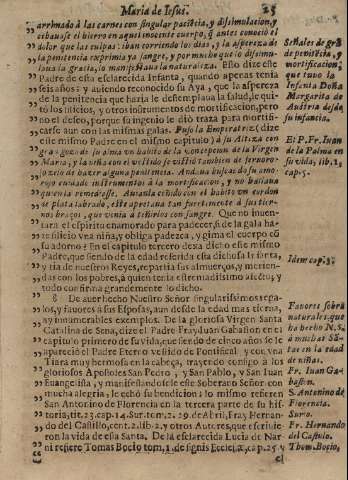 Maria de Iesus. 25
arrimado à las carnes con singular paciẽcia, y dissimulacion, y
cebauase el hierro en aquel inocente cuerpo, q̃ antes conociò el
dolor que las culpas: iban corriendo los dias, y la aspereza de
la penitencia exprimia ya sangre, y por mucho que lo dissimulaua
la gracia, lo manifestaua la naturaleza. Esto dize este
Padre de esta esclarecida Infanta, quando apenas tenia
seis años: y auiendo reconocido su Aya, que la aspereza
de la penitencia que hazia le destemplaua la salud, le quitò
los silicios, y otros instrumentos de mortificacion, pero
no el deseo, porque su ingenio le diò traza para mortificarse
aun con las mismas galas. Puso la Emperatriz (dize
este mismo Padre en el mismo capitulo) à su Alteza con
gran gozo de su alma vn habito de la Concepcion de la Virgen
Maria, y la niña con el vestido se vistiò tambien de feruoroso
zelo de hazer alguna penitencia. Andaua buscando su amoroso
cuidado instrumentos à la mortificacion, y no hallaua
que
en el habito vn cordon
de plata labrado, este apretaua tan fuertemente à sus tiernos
braços, que venia à teñirlos con sangre. Que no inuentarà
el espiritu enamorado para padecer, si de la gala haze
silicio vna niña, y obliga padezca, y gima el cuerpo cõ
su adorno? En el capitulo tercero dexa dicho este mismo
Padre, que siendo de la edad referida esta dichosa Infanta,
y tia de nuestros Reyes, repartia sus almuerços, y meriendas
con los pobres, à quien tenia estremadissimo afecto; y
todo confirma grandemente lo dicho.
8 De auer hecho Nuestro Señor singularissimos regalos,
y fauores à sus Esposas, aun desde la edad mas tierna,
ay innumerables exemplos. De la gloriosa Virgen Santa
Catalina de Sena, dize el Padre Fray Iuan Gabaston en el
capitulo primero de su vida, que siendo de cinco años se le
apareciò el Padre Eterno vestido de Pontifical, y con vna
Tiara muy hermosa en la cabeça, trayendo consigo à los
gloriosos Apostoles San Pedro, y San Pablo, y San Iuan
Euangelista, y manifestandosele este Soberano Señor con
mucha alegria, le echò su bendicion: lo mismo refieren
San Antonino de Florencia en la tercera parte de su historia,
tit. 23. cap. 14. Sur. tom. 2. 29. de Abril, Fray Hernando
del Castillo, cent. 2. lib. 2. y otros Autores, que escriuieron
la vida de esta Santa. De la esclarecida Lucia de Narni
refiere Tomas Bocio tom. 1. de signis Ecclesiæ, cap. 25. y
el
Señales de grã
de penitẽcia, y
mortificacion,
que tuuo la
Infanta Doña
Margarita de
Austria desde
su infancia.
El P. Fr. Iuan
de la Palma en
su vida, lib. 1.
cap. 5.
Idem cap. 3.
Fauores sobre
naturales, que
ha hecho N. S.
à muchas Santas
en la edad
de niñas.
Fr. Iuan Gabaston.
S. Antonino de
Florencia.
Surio.
Fr. Hernando
del Castillo.
Thom. Bocio,